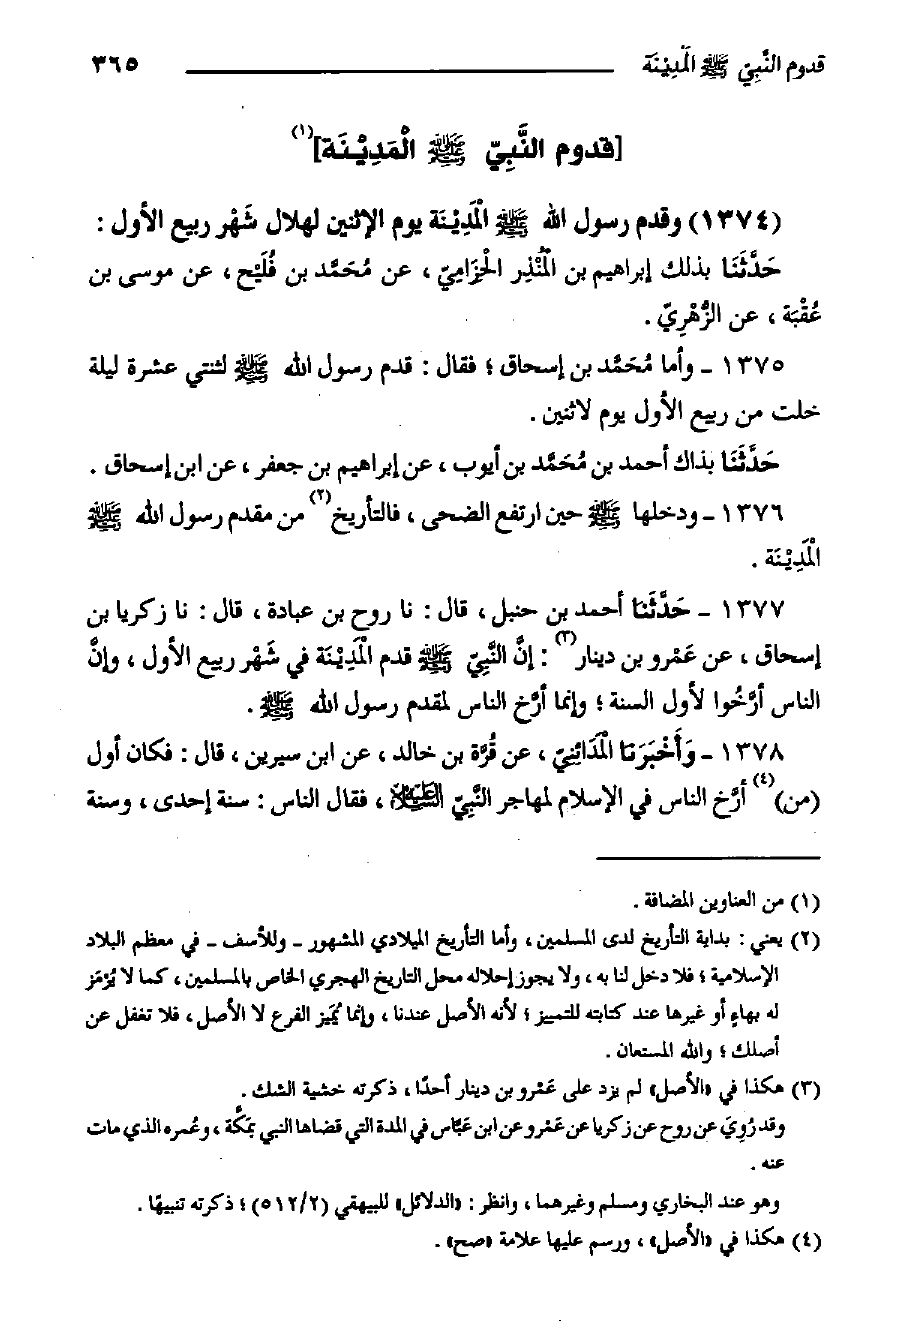 قدوم النَّبِيّ ﷺ الْمَدِيْنَة ٣٦٥
[قدوم النَّبِيّ ﷺ الْمَدِيْنَة](١)
(١٣٧٤) وقدم رسول الله ﷺ الْمَدِيْنَة يوم الإثنين لهلال شَهْر ربيع الأول :
حَدَّثَنَا بذلك إبراهيم بن الْمُنْذِر الْحِزَامِيّ ، عن مُحَمَّد بن فُلَيْح ، عن موسى بن
عُقْبَة ، عن الزُّهْرِيّ .
١٣٧٥ - وأما مُحَمَّد بن إسحاق ؛ فقال : قدم رسول الله ﷺ لثنتي عشرة ليلة
خلت من ربيع الأول يوم لاثنين .
حَدَّثَنَا بذاك أحمد بن مُحَمَّد بن أيوب ، عن إبراهيم بن جعفر ، عن ابن إسحاق .
١٣٧٦ - ودخلها ﷺ حين ارتفع الضحى ، فالتأريخ(٢) من مقدم رسول الله ﷺ
الْمَدِيْنَة .
١٣٧٧ - حَدَّثَنَا أحمد بن حنبل ، قال : نا روح بن عبادة ، قال : نا زكريا بن
إسحاق ، عن عَمْرو بن دينار(٣) : إنَّ النَّبِيّ ﷺ قدم الْمَدِيْنَة في شَهْر ربيع الأول ، وإنَّ
الناس أرَّخُوا لأول السنة ؛ وإنما أرَّخ الناس لمقدم رسول الله ﷺ .
١٣٧٨ - وَأَخْبَرَنَا الْمَدَائِنِيّ ، عن قُرَّة بن خالد ، عن ابن سيرين ، قال : فكان أول
(من)(٤) أرَّخ الناس في الإسلام لمهاجر النَّبِيّ العَلَيْهِ السَّلَام ، فقال الناس : سنة إحدى ، وسنة
(١) من العناوين المضافة .
(٢) يعني : بداية التأريخ لدى المسلمين ، وأما التأريخ الميلادي المشهور - وللأسف - في معظم البلاد
الإسلامية ؛ فلا دخل لنا به ، ولا يجوز إحلاله محل التاريخ الهجري الخاص بالمسلمين ، كما لا يُرْمَز
له بهاءٍ أو غيرها عند كتابته للتمييز ؛ لأنه الأصل عندنا ، وإنما يُمَيز الفرع لا الأصل ، فلا تغفل عن
أصلك ؛ والله المستعان .
(٣) هكذا في «الأصل» لم يزد على عَمْرو بن دينار أحدًا ، ذكرته خشية الشك .
وقد رُوِيَ عن روح عن زكريا عن عَمْرو عن ابن عَبَّاس في المدة التي قضاها النبي بمَكَّة ، وعُمره الذي مات
عنه .
وهو عند البخاري ومسلم وغيرهما ، وانظر : «الدلائل» للبيهقي (٥١٢/٢) ؛ ذكرته تنبيهًا .
(٤) هكذا في «الأصل» ، ورسم عليها علامة «صح» .